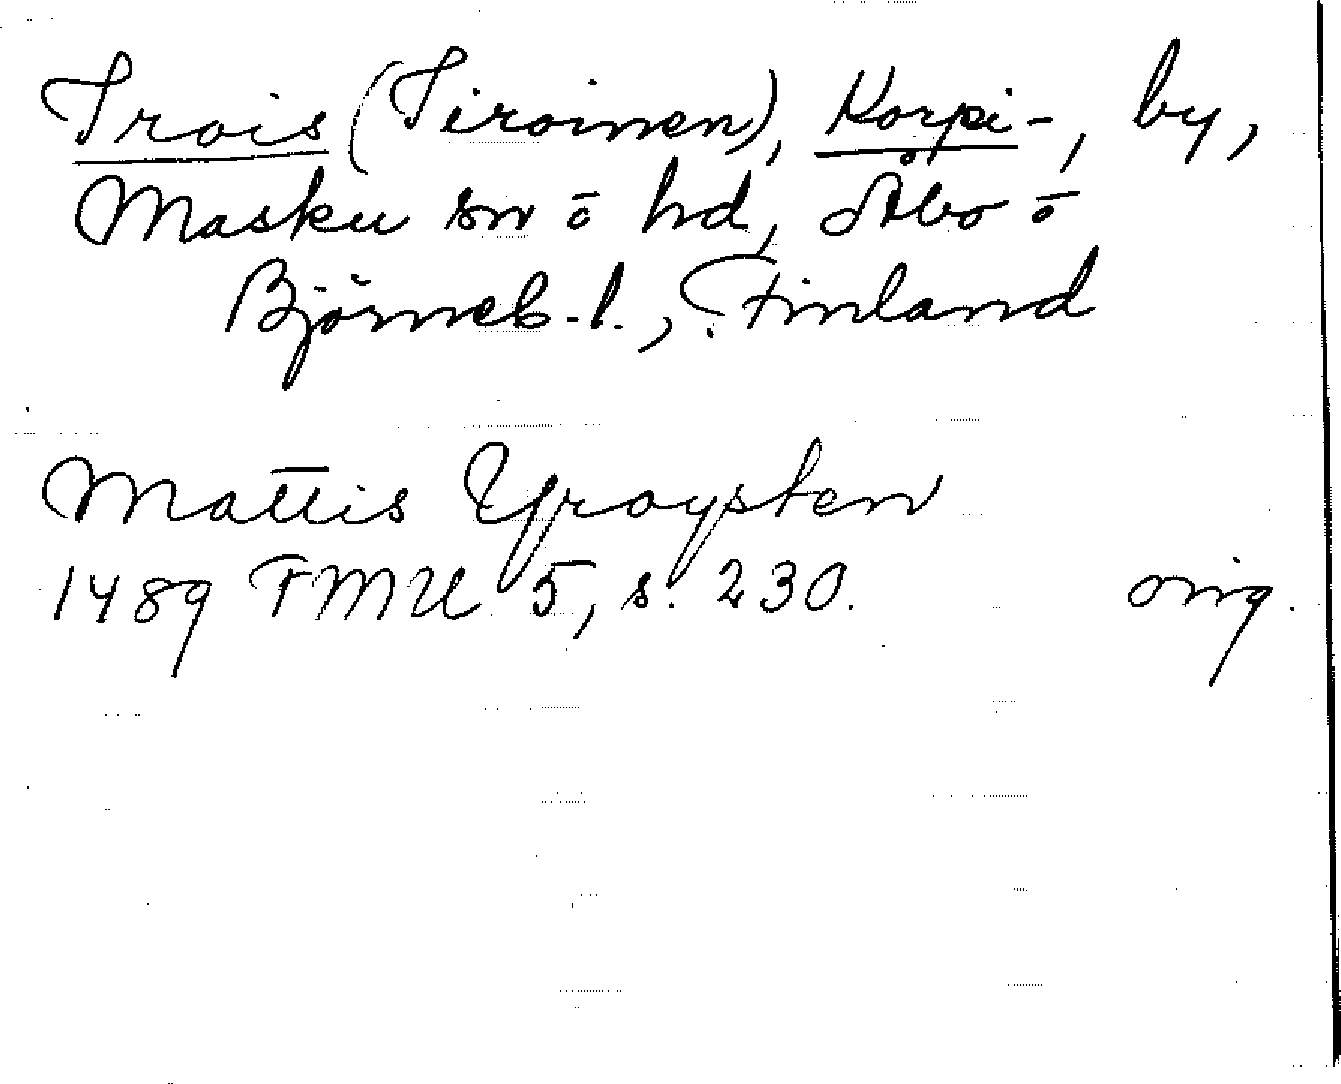 Trois (Tiroinen), Korpi-, by,
Masku sn o hd, Åbo o
Björneb. l., Finland
Mattis Yroysten
1489 FMU 5, s. 230. orig.